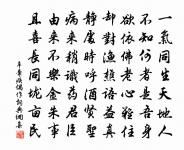 一氣同生天地人
不知何者是吾身
欲依佛老心難住
却對漁樵語益真
静處時呼酒賢聖
病來稍識藥君臣
由來不樂金朱事
且喜長同壟畝民
辛棄疾偶作詞典網書